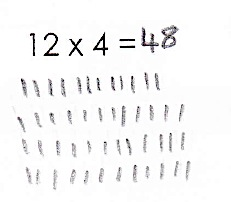 12 x 4 = 48